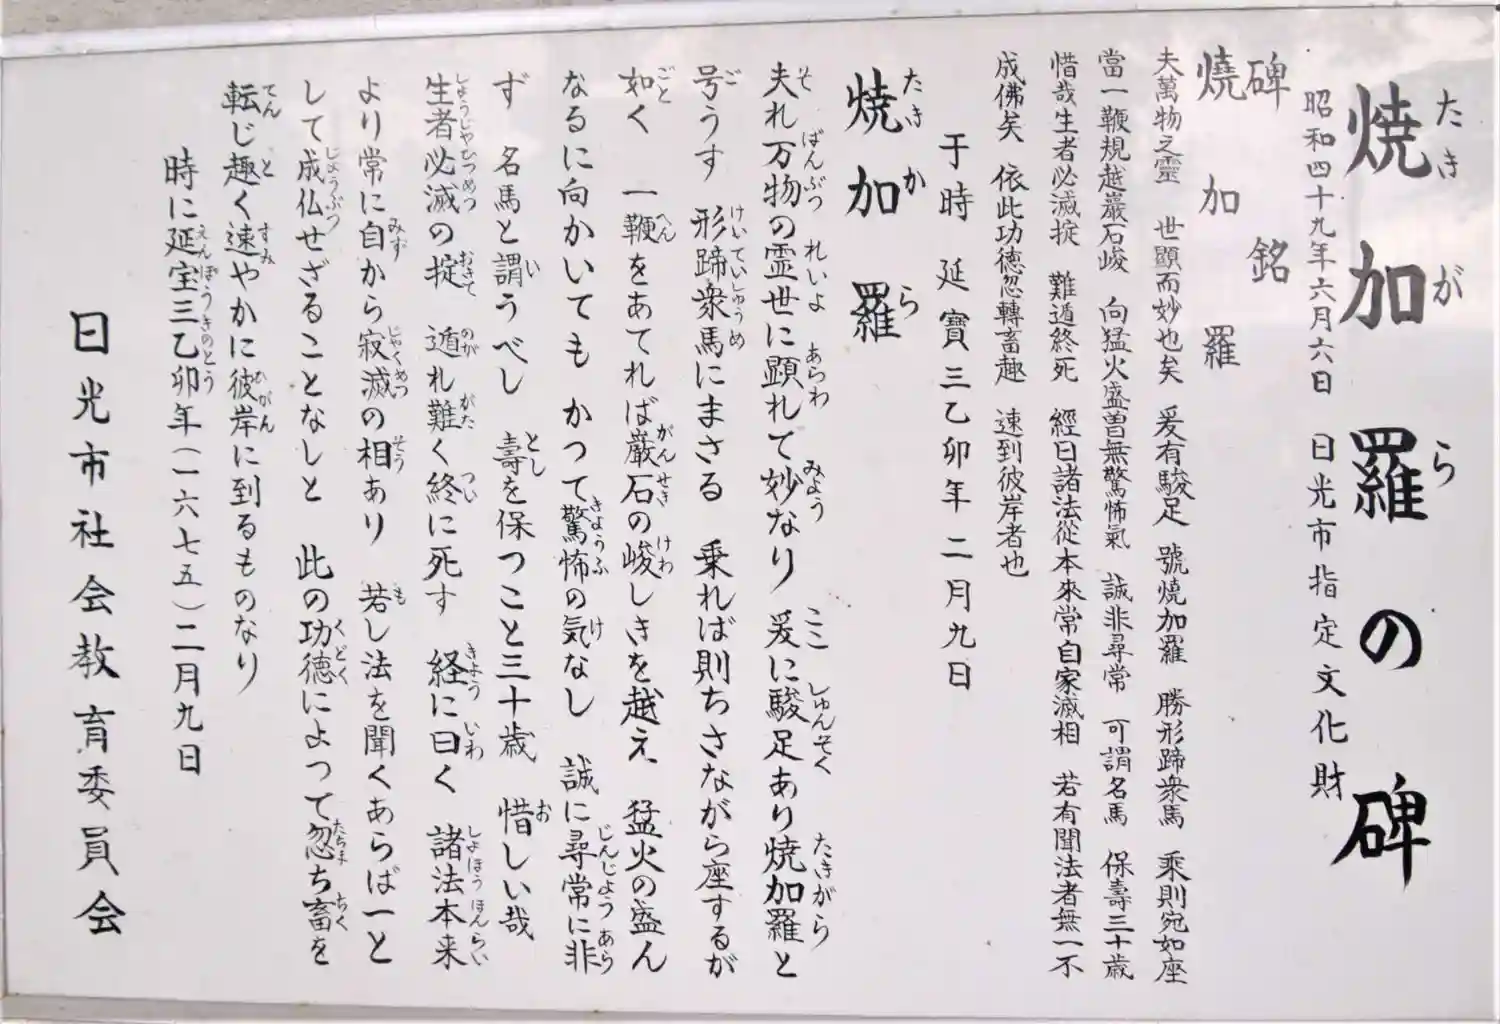 焼加羅の碑
昭和四十九年六月六日 日光市指定文化財
碑 銘
燒 加 羅
夫萬物之靈 世顯而妙也矣 爰有駿足 號燒加羅 勝形蹄衆馬 乘則宛如座
當一鞭規越巖石峻 向猛火盛曽無驚怖氣 誠非尋常 可謂名馬 保壽三十歳
惜哉生者必滅掟 難遁終死 經曰諸法從本來常自家滅相 若有聞法者無一不
成佛矣 依此功徳忽轉畜趣 速到彼岸者也
于時 延寶三乙卯年二月九日
焼加羅
夫れ万物の霊世に顕れて妙なり 爰に駿足あり焼加羅と
号うす 形蹄衆馬にまさる 乗れば則ちさながら座するが
如く 一鞭をあてれば巌石の峻しきを越え 猛火の盛ん
なるに向かいても かつて驚怖の気なし 誠に尋常に非
ず 名馬と謂うべし 壽を保つこと三十歳 惜しい哉
生者必滅の掟 遁れ難く終に死す 経に曰く 諸法本来
より常に自から寂滅の相あり 若し法を聞くあらば一と
して成仏せざることなしと 此の功徳によって忽ち畜を
転じ趣く速やかに彼岸に到るものなり
時に延宝三乙卯年（一六七五）二月九日
日光市社会教育委員会